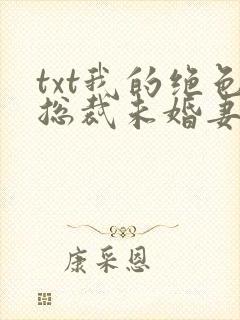 txt我的绝色
总裁未婚妻
康采恩